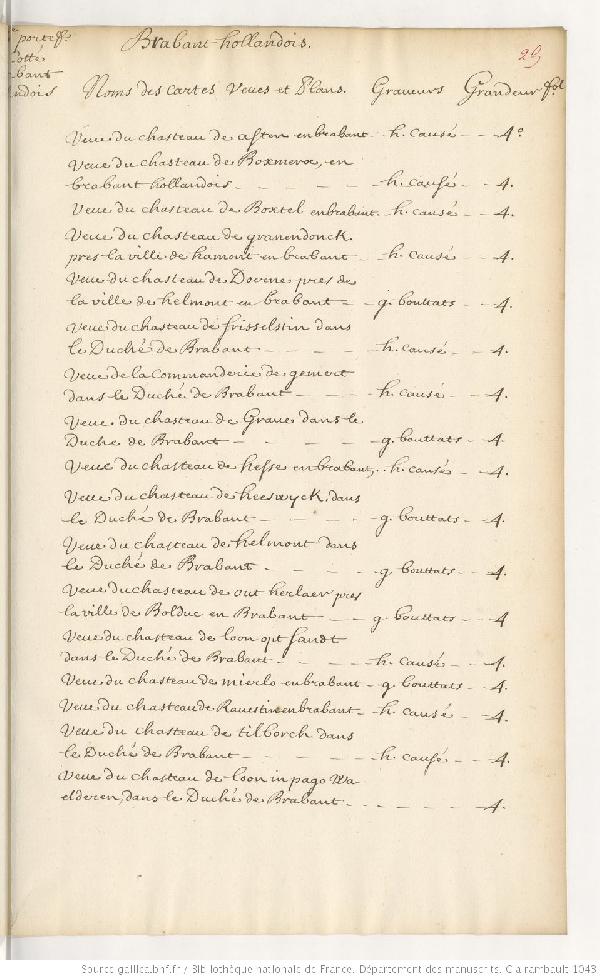 portef.
Brabant hollandois.
cotté
29
bant
ndois
Noms des cartes Veues et Plans. Graveurs Grandeur fol
Veue du chasteau de asten en brabant - h. causé - - 4°
Veue du chasteau de Boxmera, en
brabant hollandois - - - - h. causé - - 4.
Veue du chasteau de Boxtel en brabant. h. causé - - 4.
Veue du chasteau de granendonck.
pres la ville de hamont en brabant - h. causé - - 4.
Veue du chasteau de Dorne pres de
la ville de helmont en brabant - g. bouttats - - 4.
Veue du chasteau de frisselstin dans
le Duché de Brabant - - - - h. causé - - 4.
Veue de la Commanderie de gemert
dans le Duché de Brabant - - - h. causé - - 4.
Veue du chasteau de Graue dans le
Duché de Brabant - - - - g. bouttats - 4
Veue du chasteau de hesse en brabant, h. causé - - 4.
Veue du chasteau de heeswyck, dans
le Duché de Brabant - - - - g. bouttats - 4.
Veue du chasteau de helmont dans
le Duché de Brabant - - - - g. bouttats - - 4.
Veue du chasteau de out herlaer pres
la ville de Bolduc en Brabant - - g. bouttats - - 4
Veue du chasteau de loon opt sandt
dans le Duché de Brabant - - - h. causé - - 4.
Veue du chasteau de mierlo en brabant - g. bouttats - 4.
Veue du chasteau de Rauestin en brabant - h. causé - - 4.
Veue du chasteau de tilborch dans
le Duché de Brabant - - - - h. causé - - 4.
Veue du chasteau de loon in pago Wa-
elderen, dans le Duché de Brabant - - - - 4.
Source gallica.bnf.fr / Bibliothèque nationale de France. Département des manuscrits. Clairambault 1043